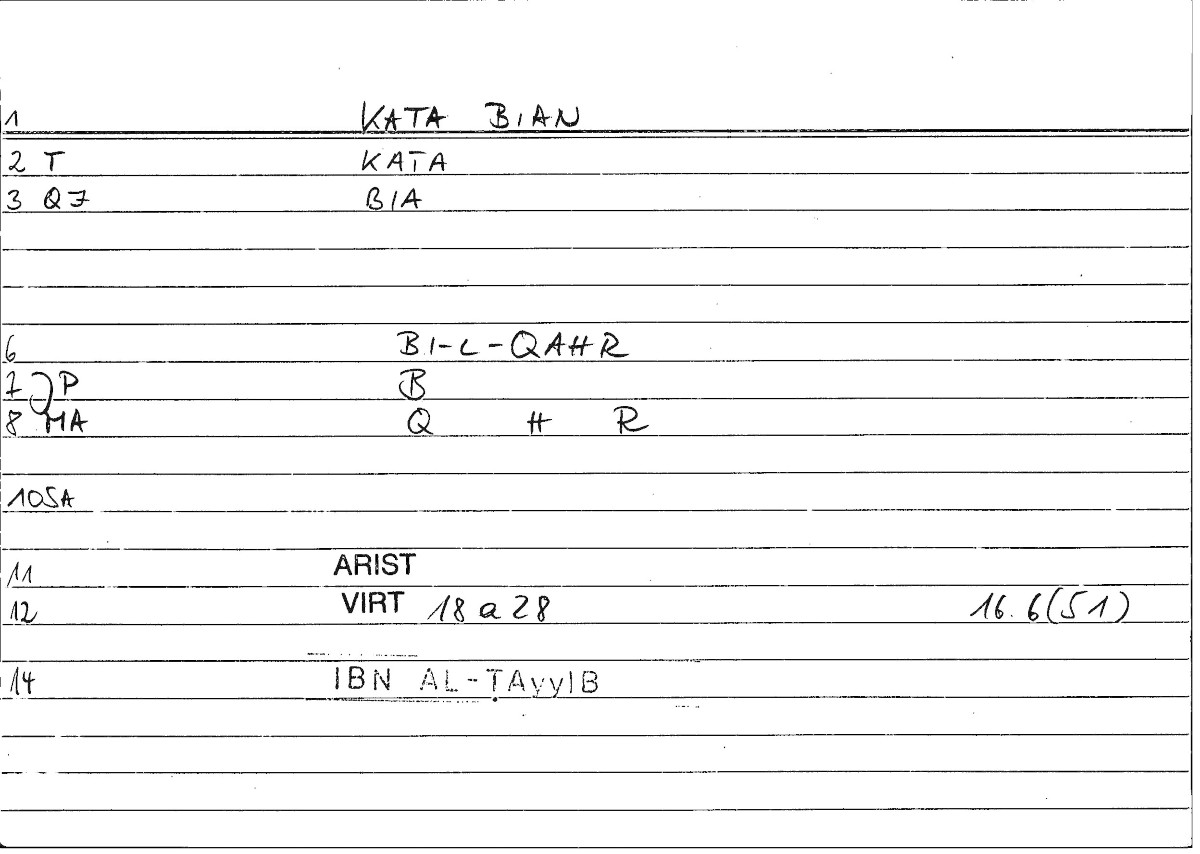 1 KATA BIAN
2 T KATA
3 Q7 BIA
6 BI-L-QAHR
7 P B
8 MA Q H R
10SA
11 ARIST
12 VIRT 18 a 28 16.6(51)
14 IBN AL-ṬAyyIB